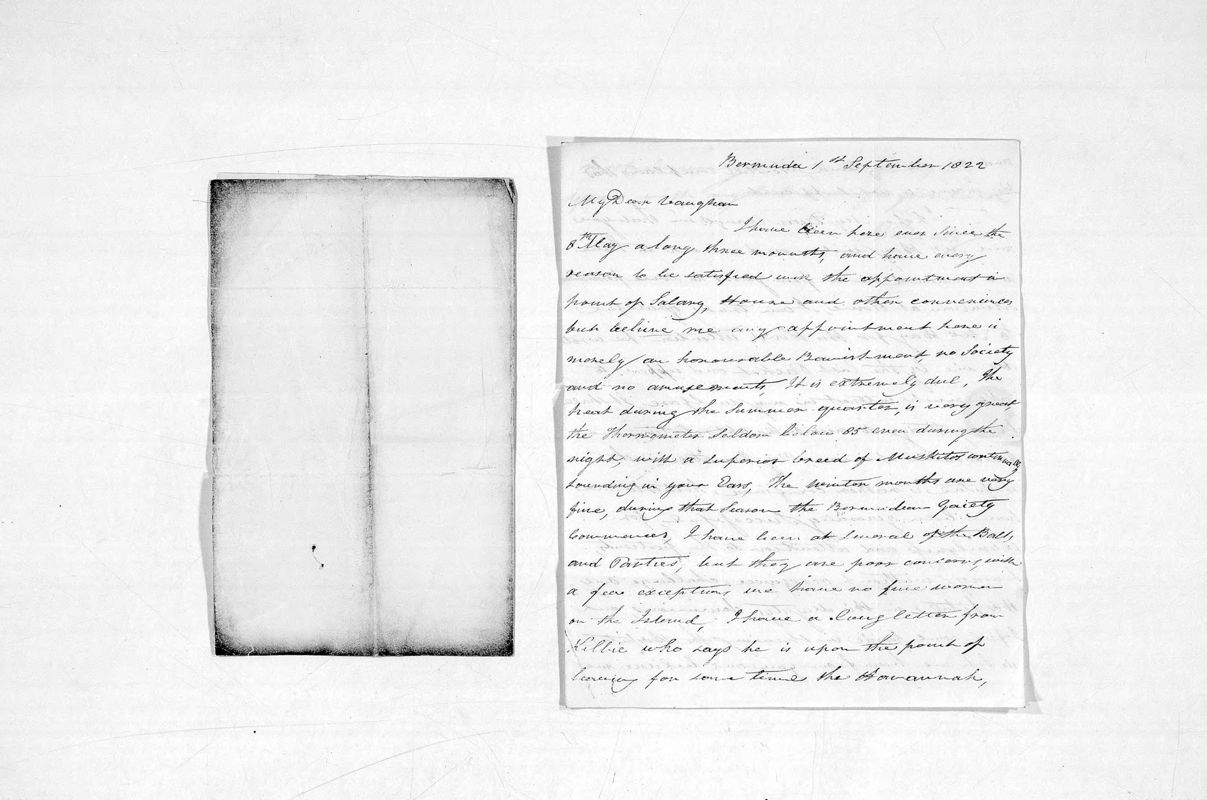 Bermuda 1st September 1822
My Dear Vaughan
I have been here ever since the
6th May a long three mounths, and have every
reason to be satisfied with the appointment in
point of Salary, House and other conveniences
but belive me any appointment here is
merely an honourable Banishment, no Society
and no amusements, It is extremely dul, The
heat during the Summer quarter, is very great,
the Thermometer Seldom below 85 even during the
night, with a superior breed of Muskitos continually
sounding in your Ears, The winter months are very
fine, during that Season the Bermudean Gaiety
Commences, I have been at Several of the Balls
and Parties, but they are poor concerns, with
a few exceptions we have no fine women
on the Island, I have a long letter from
who says he is upon the point of
leaving for some time the Havannah,